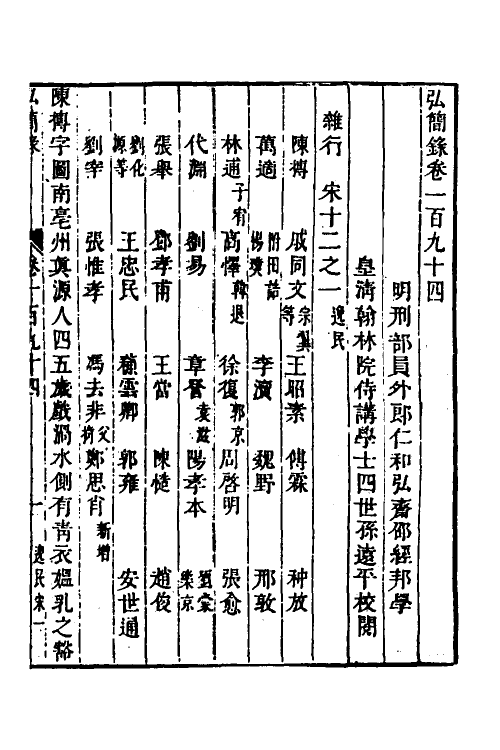 弘簡錄卷一百九十四
明刑部員外郎仁和弘齋邵經邦學
皇清翰林院侍講學士四世孫遠平校閱
雜行 宋十二之一 逸民
陳摶 戚同文 宗翼等 王昭素 傅霖 种放
萬適 附田誥楊璞 李瀆 魏野 邢敦
林逋 子宥 高懌 韓退 徐復 郭京 周啓明 張愈
代淵 劉易 章詧 袁滋 陽孝本 劉棠柴京
張舉 鄧孝甫 王當 陳慥 趙俊
劉化源等 王忠民 蘇雲卿 郭雍 安世通
劉宰 張惟孝 馮去非 父椅 鄭思肖 新增
陳摶字圖南亳州真源人四五歲戲渦水側有青衣媼乳之豁
弘簡錄 卷一百九十四 一 逸民宋一